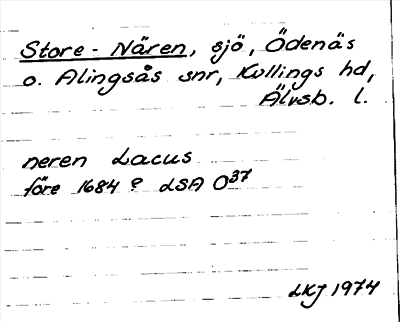 Store-Nären, sjö, Ödenäs
o. Alingsås snr, Kullings hd,
Älvsb. l.
neren Lacus
före 1684? LSA O37
LKJ 1974